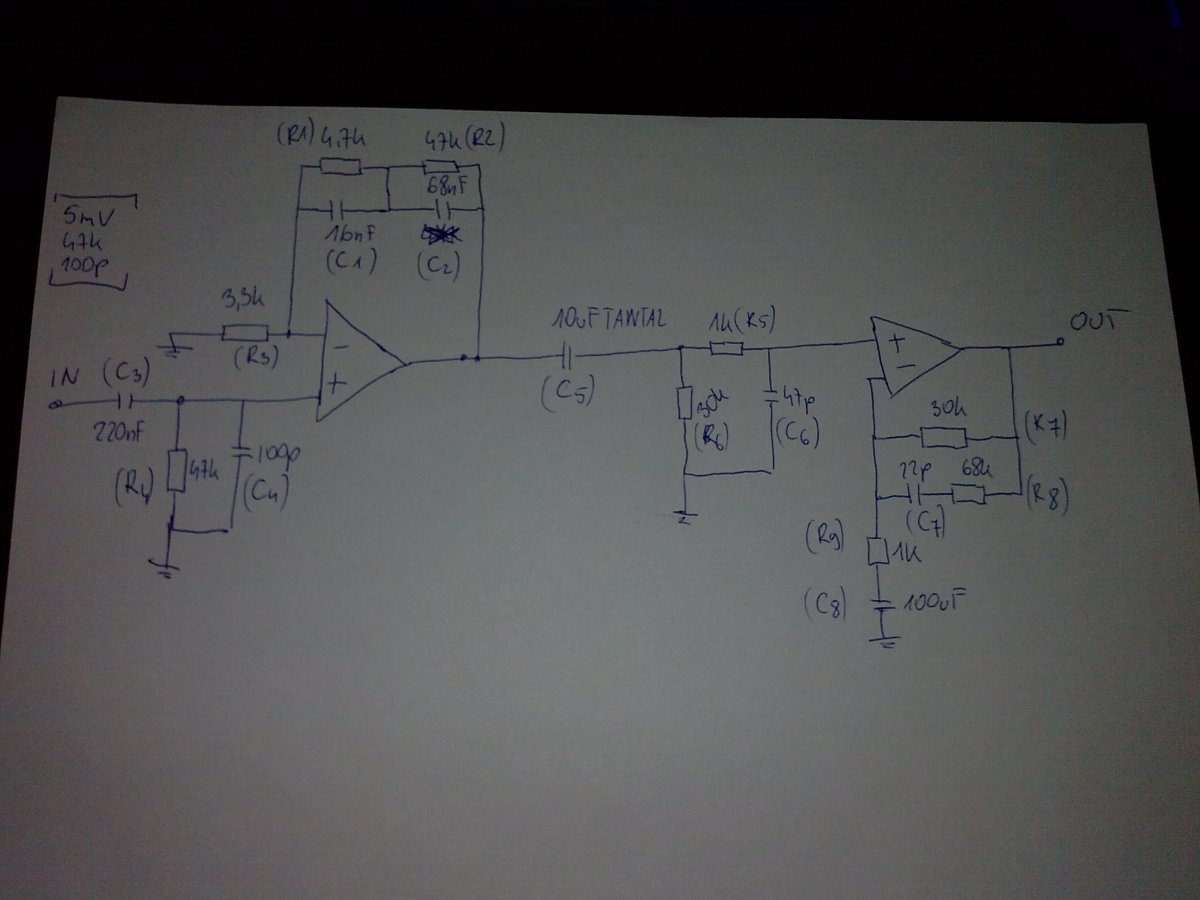 (R1) 4,7k
47k (R2)
68nF
16nF
(C1)
(C2)
5mV
47k
100p
3,3k
(R3)
-
+
IN
(C3)
220nF
(R4)
47k
100p
(C4)
10uF TANTAL
(C5)
1k (R5)
30k
(R6)
47p
(C6)
+
-
OUT
30k
(R7)
22p
68k
(C7)
(R8)
(R9)
1k
(C8)
100uF